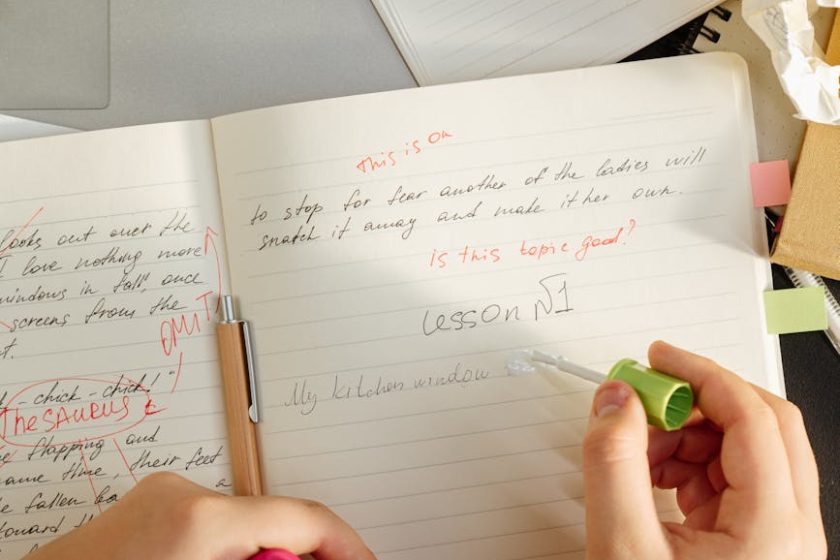 looks out over the
I love nothing more
windows in fall, once
screens from the
OMIT
- chick-chick!"
Thesaurus
flapping and
same time, their feet
fallen
toward the
a
this is on
to stop for fear another of the ladies will
snatch it away and make it her own.
is this topic good?
Lesson №1
My kitchen window